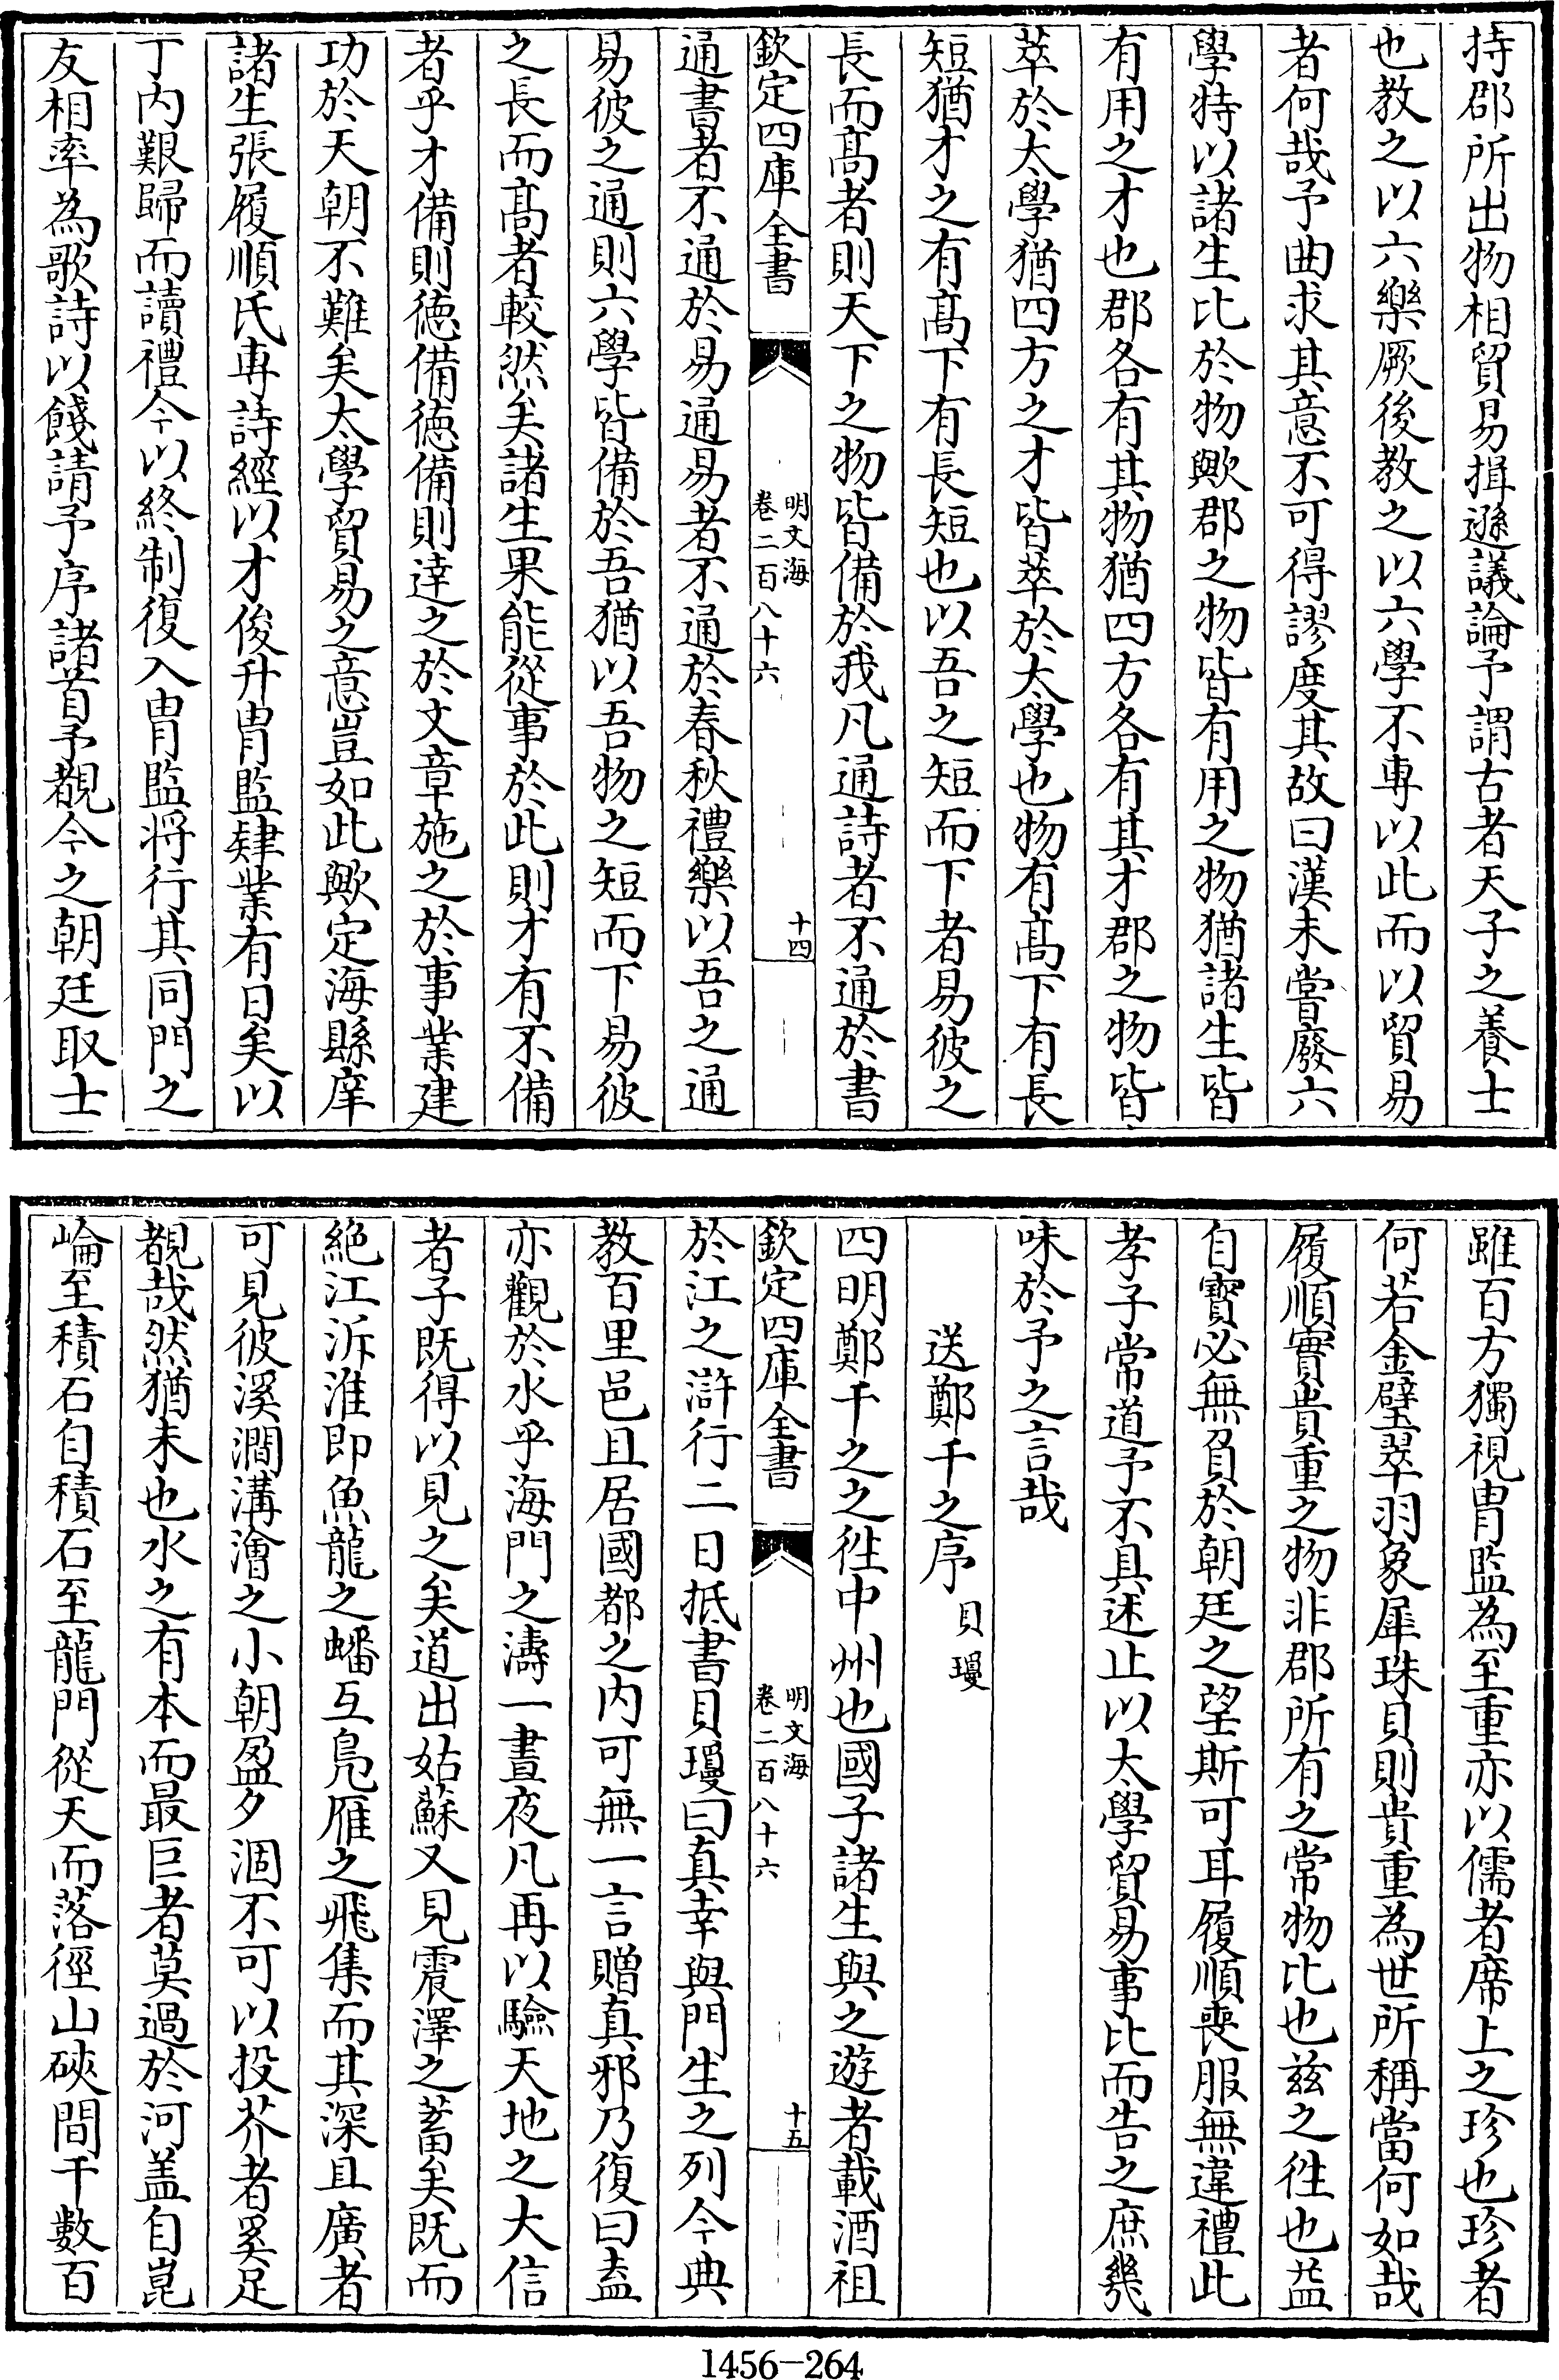 持郡所出物相貿易揖遜議論予謂古者天子之養士
也教之以六樂厥後教之以六學不専以此而以貿易
者何哉予曲求其意不可得謬度其故曰漢未嘗廢六
學特以諸生比於物歟郡之物皆有用之物猶諸生皆
有用之才也郡各有其物猶四方各有其才郡之物皆
萃於太學猶四方之才皆萃於太學也物有髙下有長
短猶才之有髙下有長短也以吾之短而下者易彼之
長而髙者則天下之物皆備於我凡通詩者不通於書
欽定四庫全書
明文海
卷二百八十六
十四
通書者不通於易通易者不通於春秋禮樂以吾之通
易彼之通則六學皆備於吾猶以吾物之短而下易彼
之長而髙者較然矣諸生果能從事於此則才有不備
者乎才備則徳備徳備則逹之於文章施之於事業建
功於天朝不難矣太學貿易之意豈如此歟定海縣庠
諸生張履順氏専詩經以才俊升胄監肄業有日矣以
丁内艱歸而讀禮今以終制復入胄監将行其同門之
友相率為歌詩以餞請予序諸首予觀今之朝廷取士
雖百方獨視胄監為至重亦以儒者席上之珍也珍者
何若金璧翠羽象犀珠貝則貴重為世所稱當何如哉
履順實貴重之物非郡所有之常物比也兹之徃也益
自寳必無負於朝廷之望斯可耳履順喪服無違禮此
孝子常道予不具述止以太學貿易事比而告之庶幾
味於予之言哉
送鄭千之序 貝瓊
四明鄭千之之徃中州也國子諸生與之遊者載酒祖
欽定四庫全書
明文海
卷二百八十六
十五
於江之滸行二日抵書貝瓊曰真幸與門生之列今典
教百里邑且居國都之内可無一言贈真邪乃復曰盍
亦觀於水乎海門之濤一晝夜凡再以驗天地之大信
者子既得以見之矣道出姑蘇又見震澤之蓄矣既而
絶江泝淮即魚龍之蟠互鳬雁之飛集而其深且廣者
可見彼溪澗溝澮之小朝盈夕涸不可以投芥者奚足
觀哉然猶未也水之有本而最巨者莫過於河盖自崑
崘至積石自積石至龍門從天而落徑山硤間千數百
1456-264